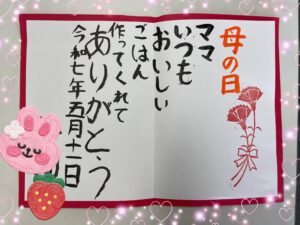 母の日
ママ
いつも
おいしい
ごはん
作ってくれて
ありがとう
令和七年五月十一日